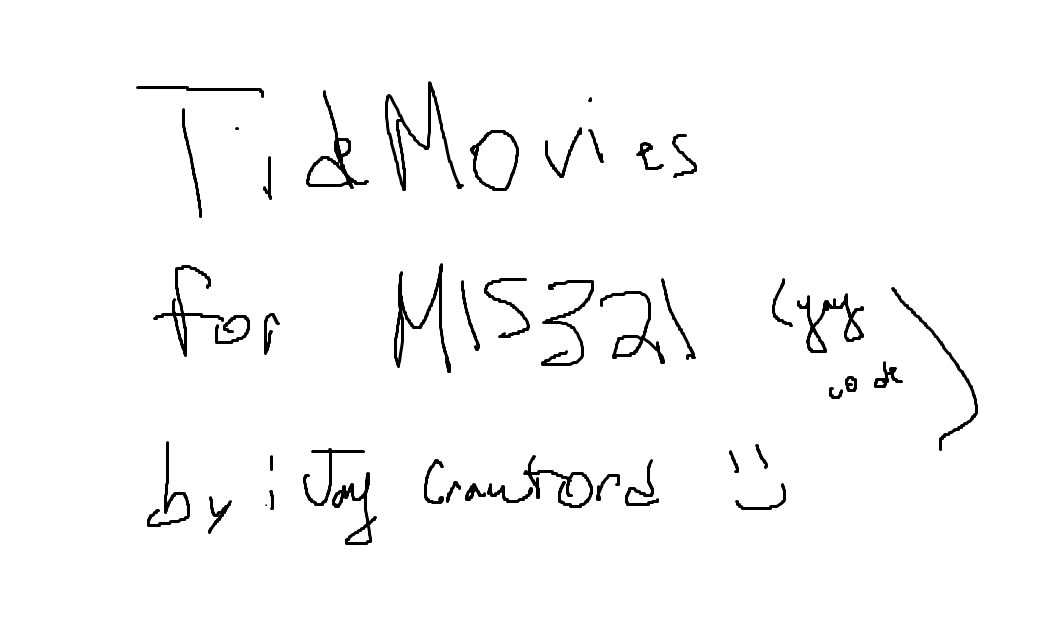 TideMovies
for MIS321 (yay code)
by: Jay Crawford :)